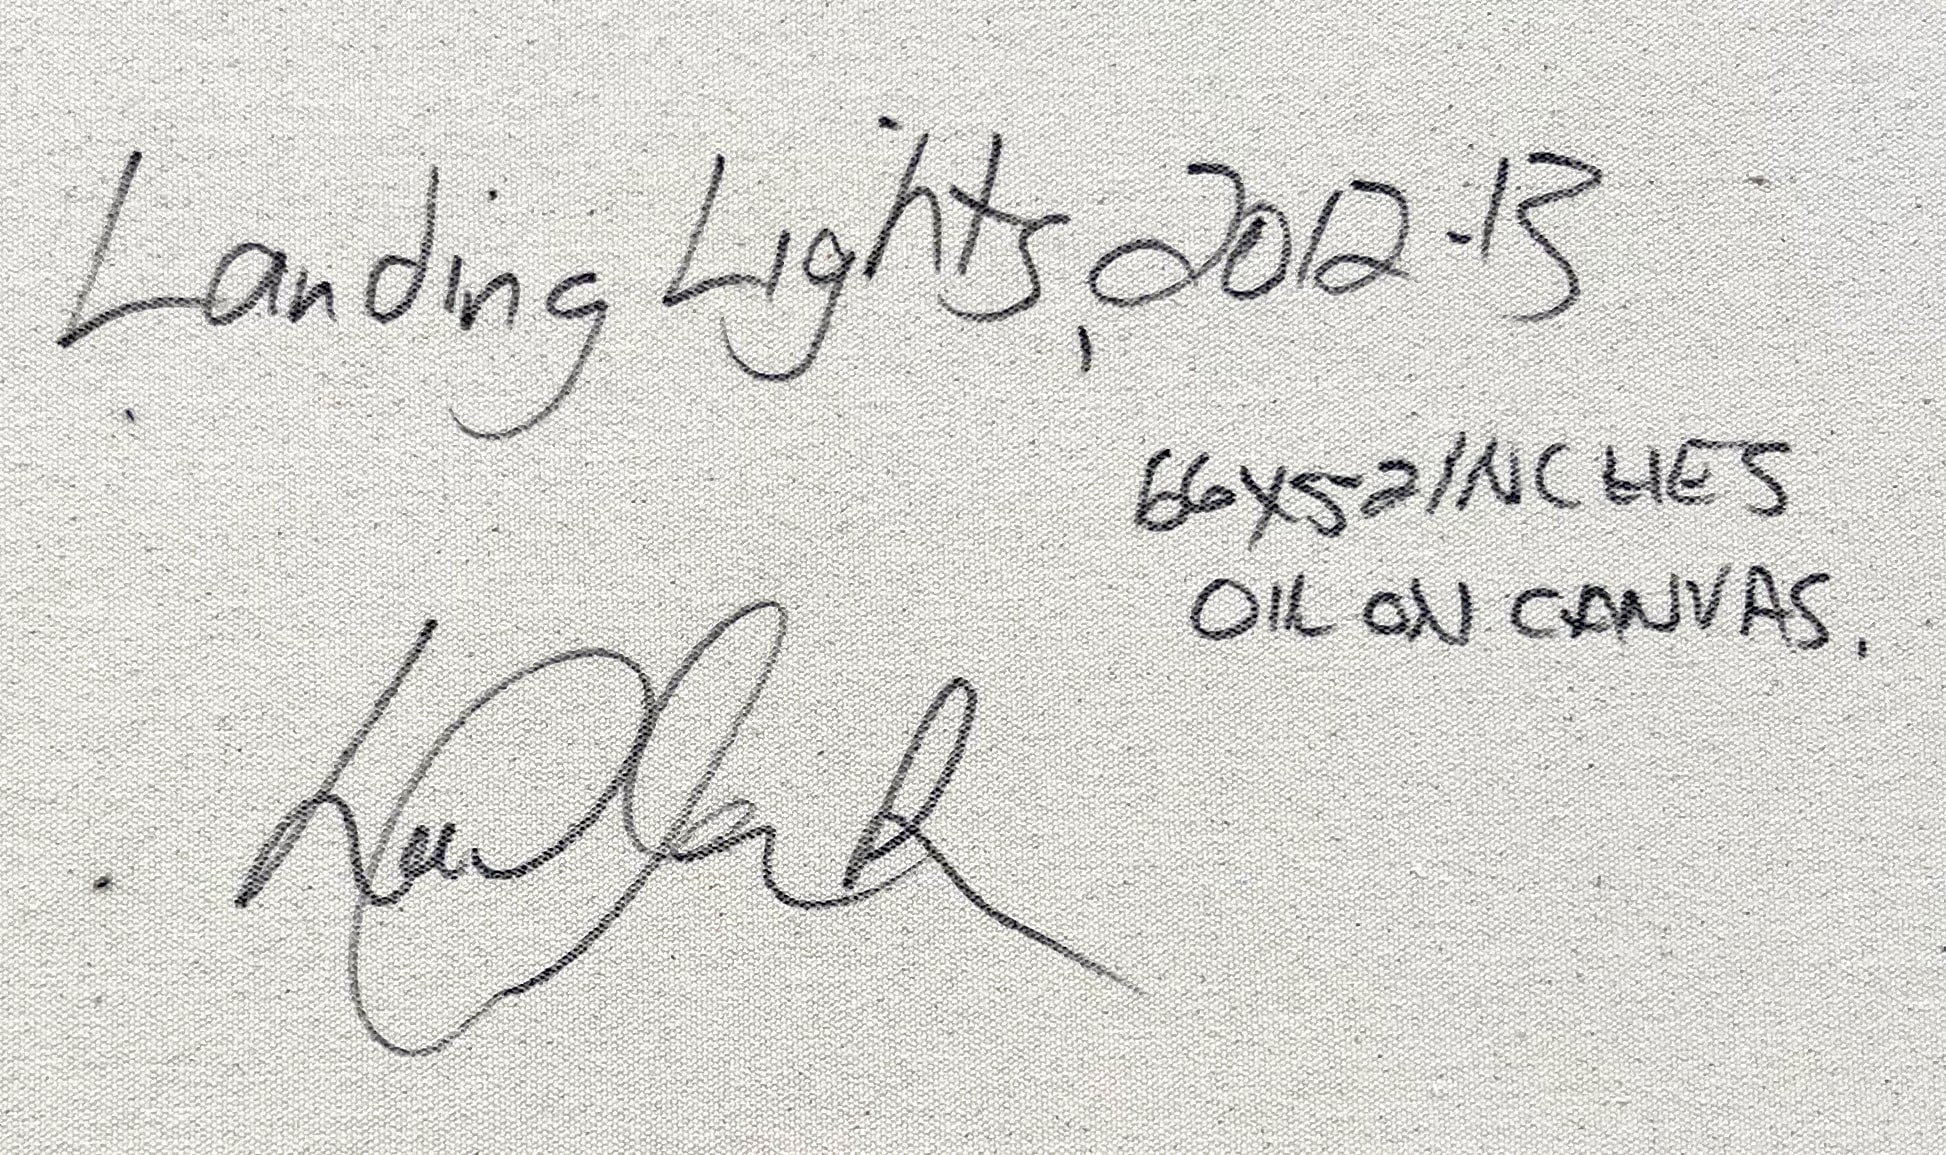 Landing Lights, 2012-13
66X52 INCHES
OIL ON CANVAS.